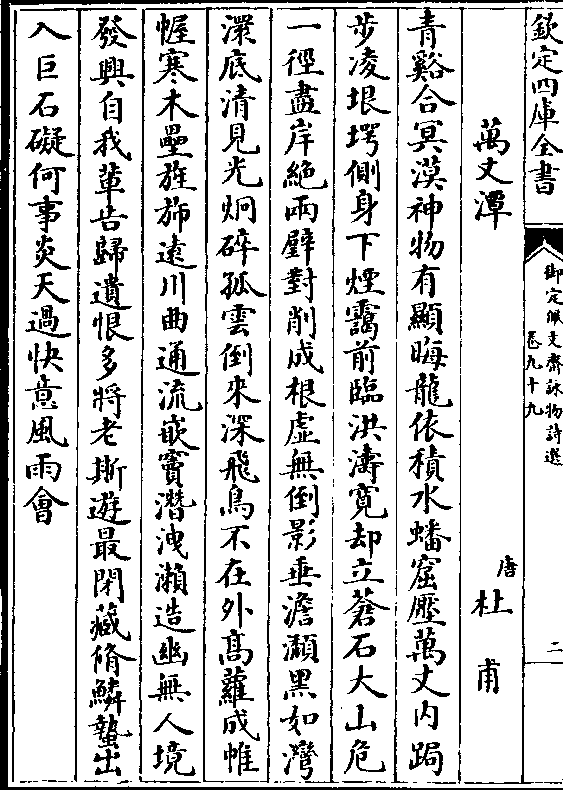 欽定四庫全書
御定佩文齋詠物詩選
卷九十九
二
萬丈潭
唐
杜甫
青谿合冥漠神物有顯晦龍依積水蟠窟壓萬丈内跼
步凌垠堮側身下煙靄前臨洪濤寛却立蒼石大山危
一徑盡岸絶兩壁對削成根虚無倒影垂澹瀩黑如灣
澴底清見光炯碎孤雲倒來深飛鳥不在外髙蘿成帷
幄寒木壘旌斾逺川曲通流嵌竇潛洩瀨造幽無人境
發興自我輩告歸遺恨多將老斯遊最閉藏脩鱗蟄出
入巨石礙何事炎天過快意風雨會